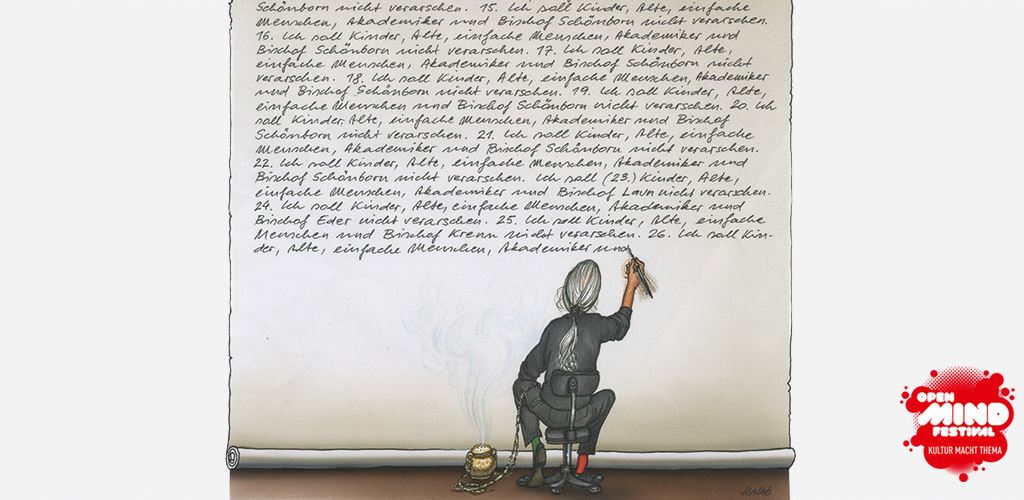 Schönborn nicht verarschen. 15. Ich soll Kinder, Alte, einfache
Menschen, Akademiker und Bischof Schönborn nicht verarschen.
16. Ich soll Kinder, Alte, einfache Menschen, Akademiker und
Bischof Schönborn nicht verarschen. 17. Ich soll Kinder, Alte,
einfache Menschen, Akademiker und Bischof Schönborn nicht
verarschen. 18. Ich soll Kinder, Alte, einfache Menschen, Akademiker
und Bischof Schönborn nicht verarschen. 19. Ich soll Kinder, Alte,
einfache Menschen und Bischof Schönborn nicht verarschen. 20. Ich
soll Kinder, Alte, einfache Menschen, Akademiker und Bischof
Schönborn nicht verarschen. 21. Ich soll Kinder, Alte, einfache
Menschen, Akademiker und Bischof Schönborn nicht verarschen.
22. Ich soll Kinder, Alte, einfache Menschen, Akademiker und
Bischof Schönborn nicht verarschen. Ich soll (23.) Kinder, Alte,
einfache Menschen, Akademiker und Bischof Laun nicht verarschen.
24. Ich soll Kinder, Alte, einfache Menschen, Akademiker und
Bischof Eder nicht verarschen. 25. Ich soll Kinder, Alte, einfache
Menschen und Bischof Krenn nicht verarschen. 26. Ich soll Kin-
der, Alte, einfache Menschen, Akademiker und
OPEN
MIND
FESTIVAL
KULTUR MACHT THEMA